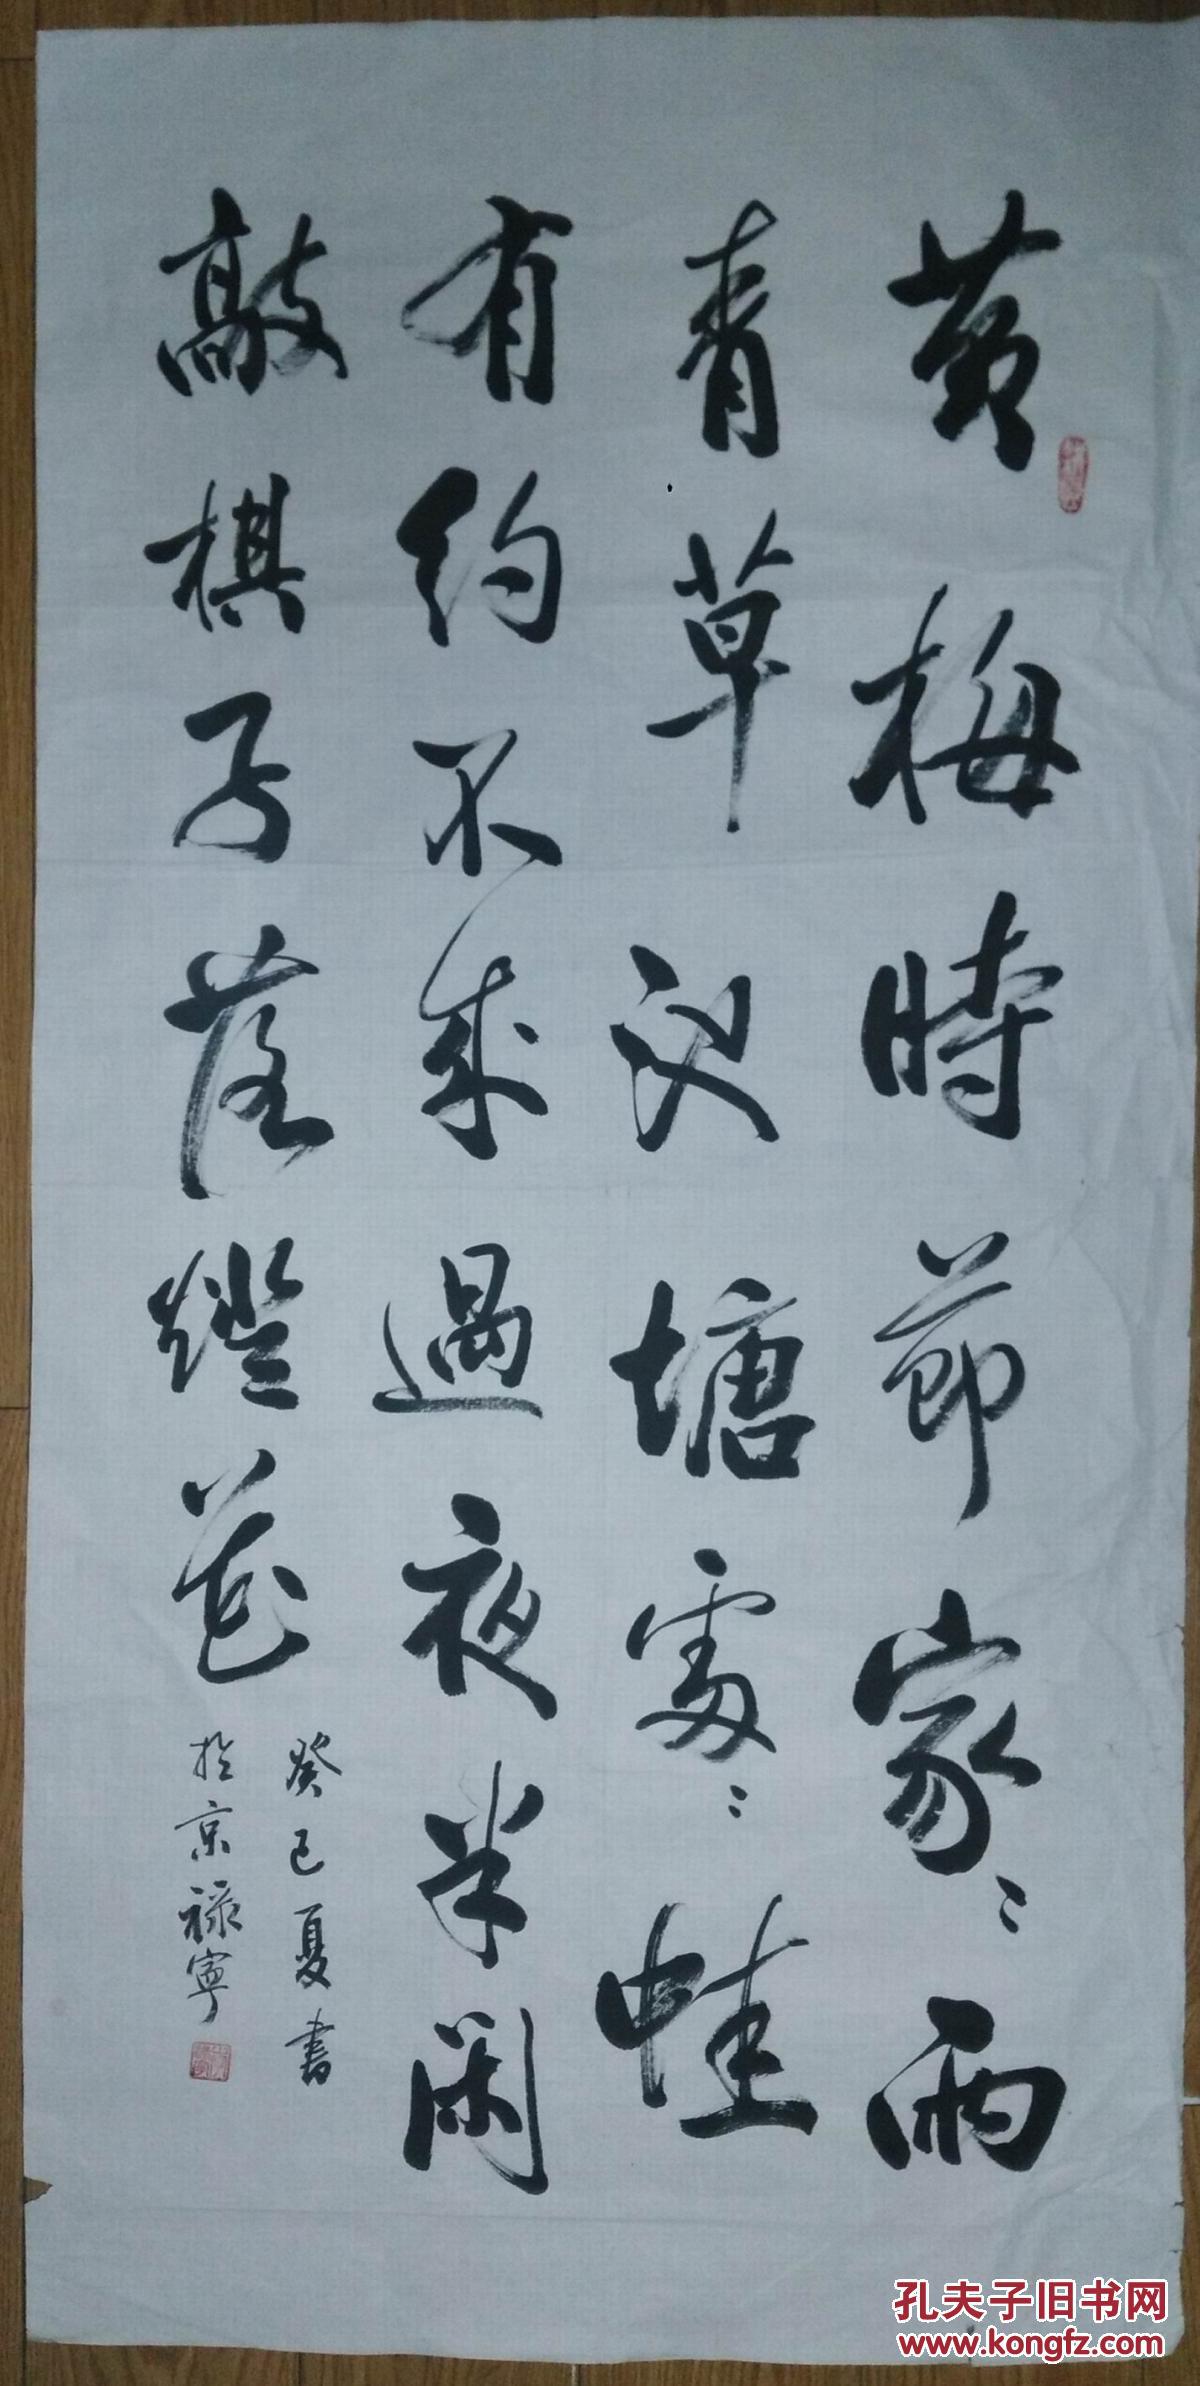 黄梅時節家〻雨
青草池塘處〻蛙
有約不来過夜半閑
敲棋子落燈花
癸巳夏書
於京禄寧
孔夫子旧书网
www.kongfz.com